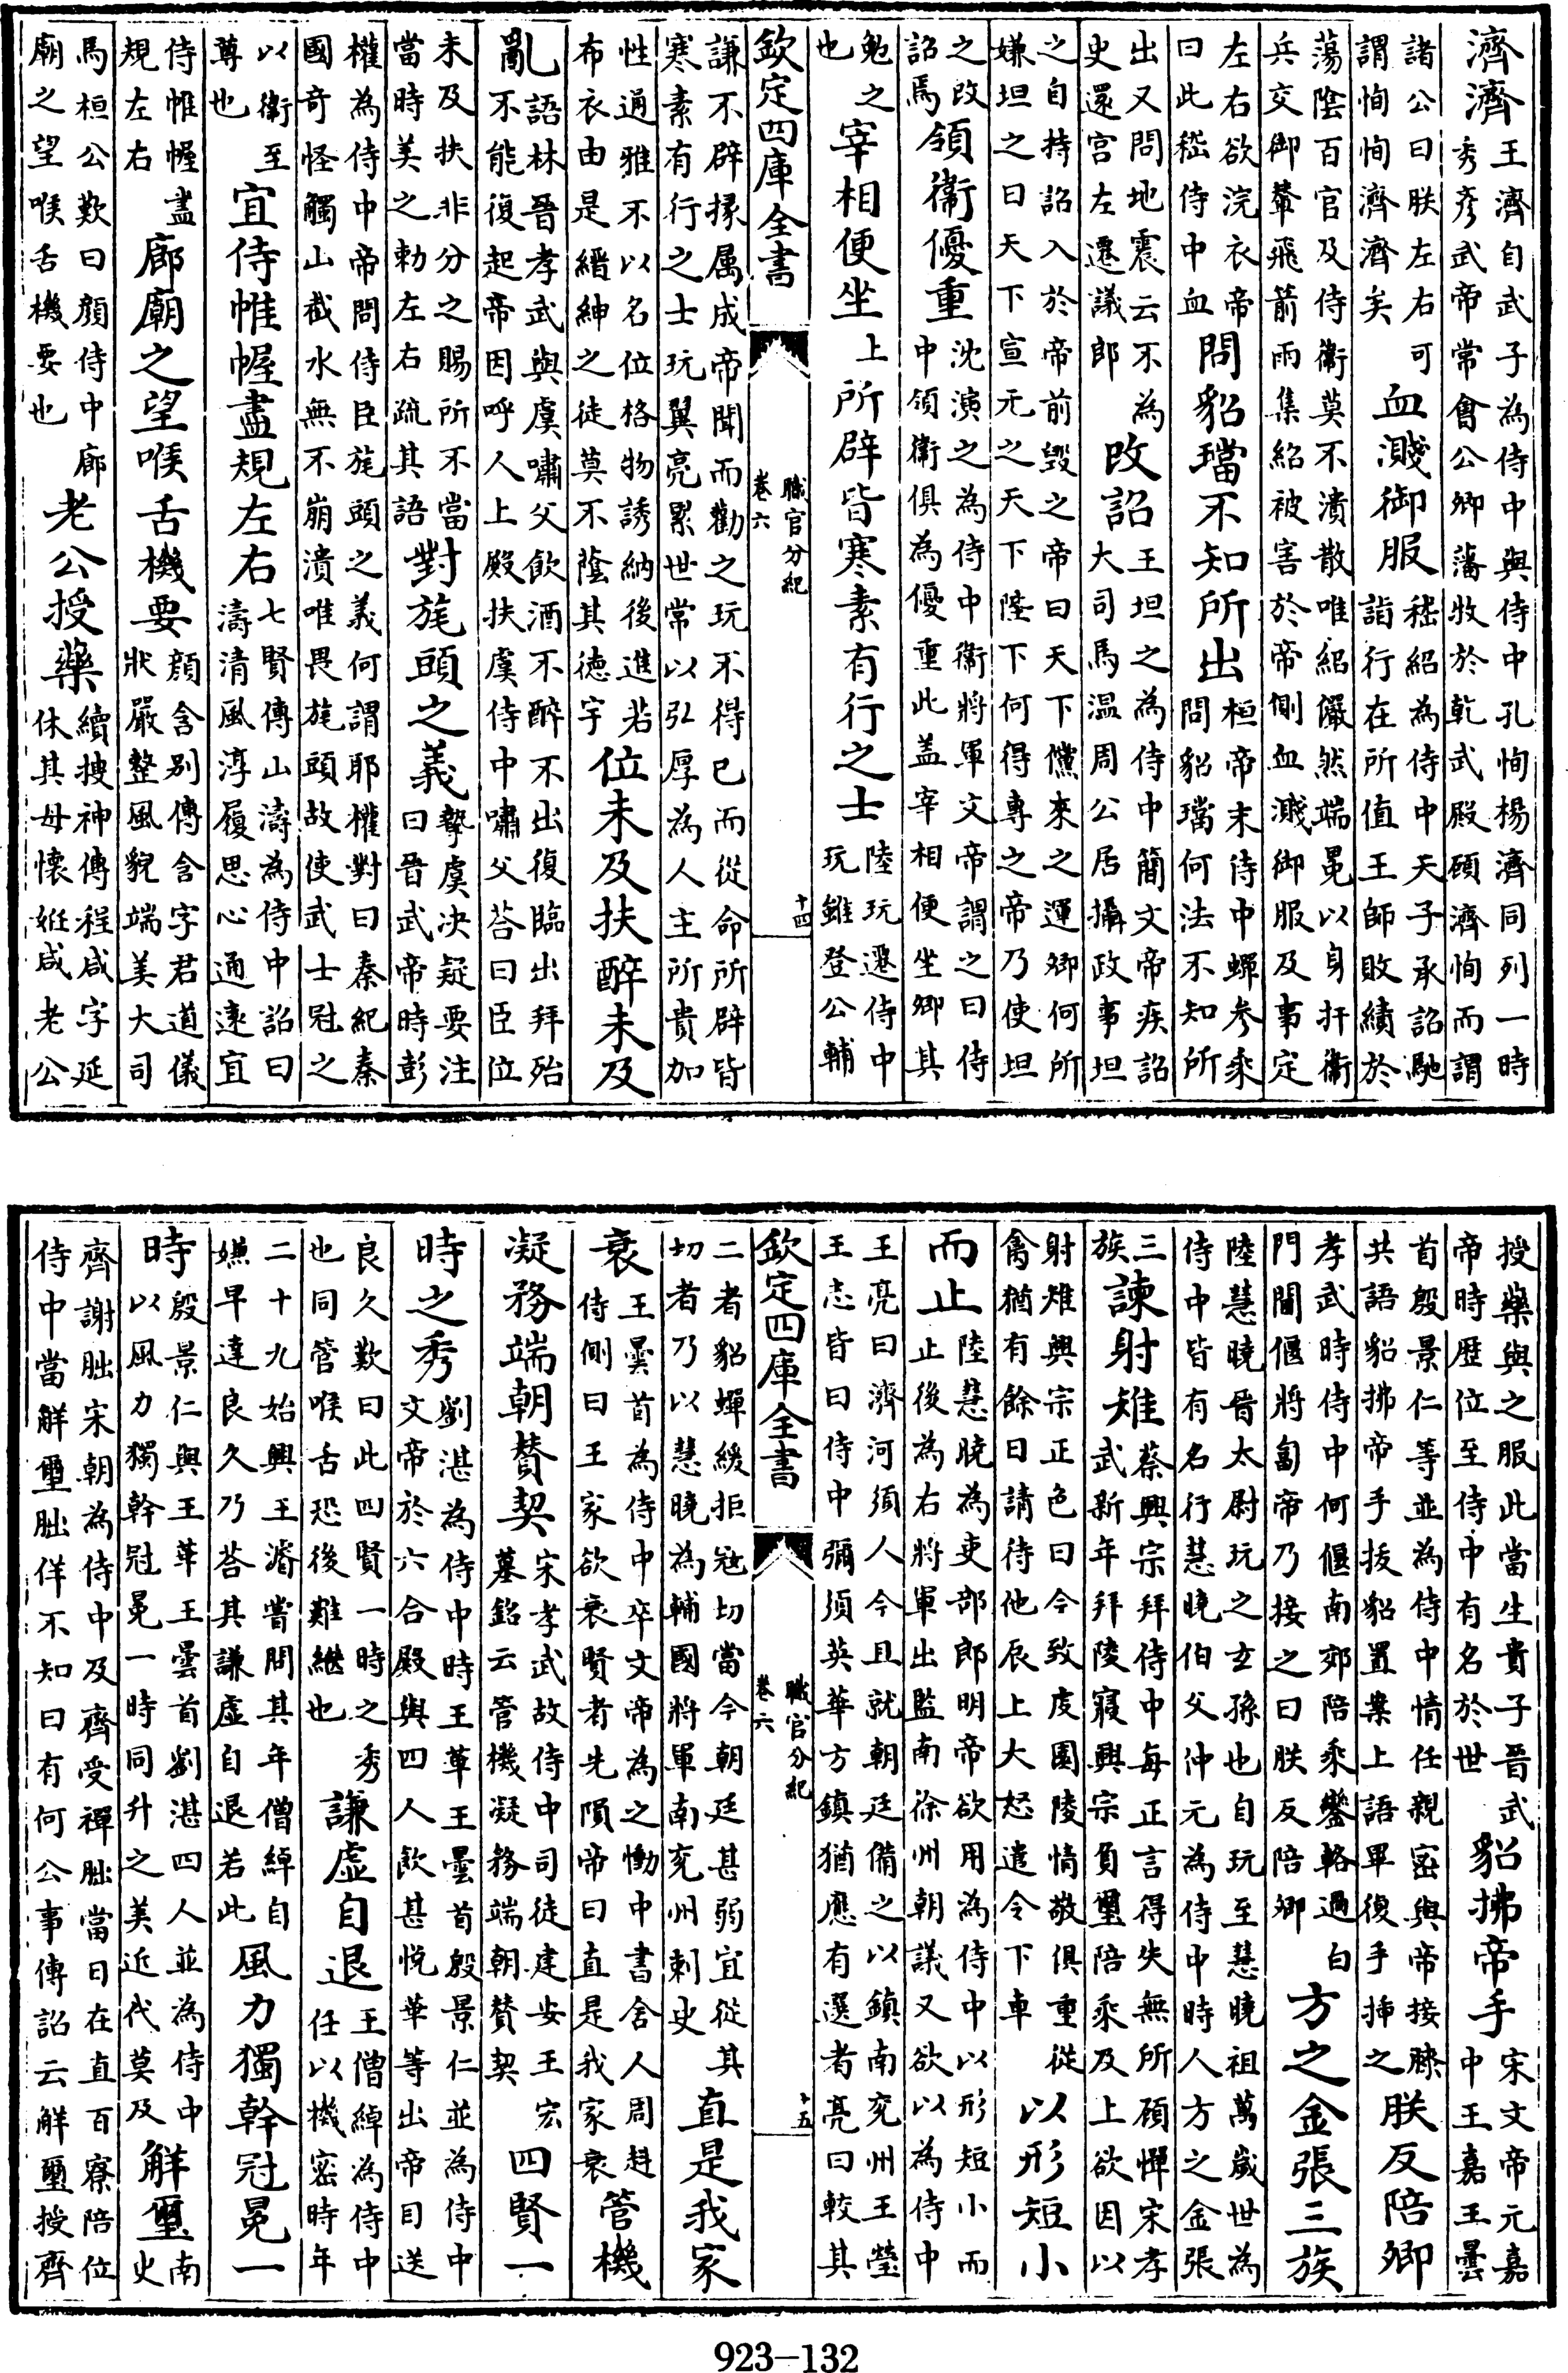 濟濟王濟自武子為侍中與侍中孔恂楊濟同列一時秀彦武帝常會公卿藩牧於乾武殿顧濟恂而謂
諸公曰朕左右可謂恂恂濟濟矣血濺御服嵇紹為侍中天子承詔馳詣行在所值王師敗績於
蕩陰百官及侍衛莫不潰散唯紹儼然端冕以身扞衛兵交御輦飛箭雨集紹被害於帝側血濺御服及事定
左右欲浣衣帝曰此嵇侍中血問貂璫不知所出桓帝末侍中蟬參乘問貂璫何法不知所
出又問地震云不為史還宮左遷議郎改詔王坦之為侍中簡文帝疾詔大司馬温周公居攝政事坦
之自持詔入於帝前毁之帝曰天下儻來之運卿何所嫌坦之曰天下宣元之天下陛下何得專之帝乃使坦
之改詔焉領衛優重沈演之為侍中衛將軍文帝謂之曰侍中領衛俱為優重此盖宰相便坐卿其
勉之也宰相便坐上所辟皆寒素有行之士陸玩遷侍中玩雖登公輔
欽定四庫全書 職官分紀 卷六 十四
謙不辟掾属成帝聞而勸之玩不得已而從命所辟皆寒素有行之士玩翼亮累世常以弘厚為人主所貴加
性通雅不以名位格物誘納後進若布衣由是縉紳之徒莫不蔭其徳宇位未及扶醉未及
亂語林晉孝武與虞嘯父飲酒不醉不出復臨出拜殆不能復起帝因呼人上殿扶虞侍中嘯父荅曰臣位
未及扶非分之賜所不當當時美之勅左右疏其語對旄頭之義摯虞决疑要注曰晉武帝時彭
權為侍中帝問侍臣旄頭之義何謂耶權對曰秦紀秦國奇怪觸山截水無不崩潰唯畏旄頭故使武士冠之
以衛至尊也宜侍帷幄盡規左右七賢傳山濤為侍中詔曰濤清風淳履思心通遠宜
侍帷幄盡規左右廊廟之望喉舌機要顔含别傳含字君道儀狀嚴整風貌端美大司
馬桓公歎曰顔侍中廊廟之望喉舌機要也老公授藥續搜神傳程咸字延休其母懷姙咸老公
授藥與之服此當生貴子晉武帝時歴位至侍中有名於世貂拂帝手宋文帝元嘉中王嘉王曇
首殷景仁等並為侍中情任親密與帝接膝共語貂拂帝手拔貂置案上語畢復手揷之朕反陪卿
孝武時侍中何偃南郊陪乘鑾輅過白門閫偃將匐帝乃接之曰朕反陪卿方之金張三族
陸慧曉晉太尉玩之玄孫也自玩至慧曉祖萬嵗世為侍中皆有名行慧曉伯父仲元為侍中時人方之金張
三族諫射雉蔡興宗拜侍中每正言得失無所顧憚宋孝武新年拜陵寢興宗負璽陪乘及上欲因以
射雉興宗正色曰今致䖍園陵情敬俱重從禽猶有餘日請待他辰上大怒遣令下車以形短小
而止陸慧曉為吏部郎明帝欲用為侍中以形短小而止後為右將軍出監南徐州朝議又欲以為侍中
王亮曰濟河須人今且就朝廷備之以鎮南兖州王瑩王志皆曰侍中彌須英華方鎮猶應有選者亮曰較其
欽定四庫全書 職官分紀 卷六 十五
二者貂蟬緩拒冦切當今朝廷甚弱宜從其切者乃以慧曉為輔國將軍南兖州刺史直是我家
衰王曇首為侍中卒文帝為之慟中書舍人周赳侍側曰王家欲衰賢者先隕帝曰直是我家衰管機
凝務端朝賛契宋孝武故侍中司徒建安王宏墓銘云管機凝務端朝賛契四賢一
時之秀劉湛為侍中時王華王曇首殷景仁並為侍中文帝於六合殿與四人飲甚悦華等出帝目送
良久歎曰此四賢一時之秀也同管喉舌恐後難繼也謙虚自退王僧綽為侍中任以機密時年
二十九始興王濬嘗問其年僧綽自嫌早達良久乃荅其謙虚自退若此風力獨幹冠冕一
時殷景仁與王華王曇首劉湛四人並為侍中以風力獨幹冠冕一時同升之美近代莫及解璽南史
齊謝朏宋朝為侍中及齊受禪朏當日在直百寮陪位侍中當解璽朏佯不知曰有何公事傳詔云解璽授齊
923—132